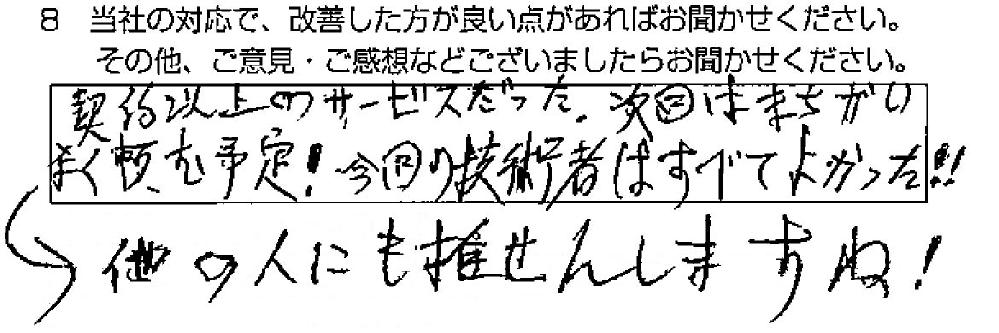 8 当社の対応で、改善した方が良い点があればお聞かせください。
その他、ご意見・ご感想などございましたらお聞かせください。
契約以上のサービスだった。次回はまちがい
なく頼む予定！今回の技術者はすべてよかった!!
他の人にも推せんしますね！